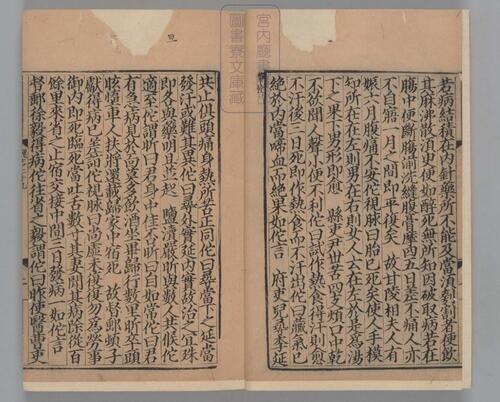 若病結積在内針藥所不能及當須刳割者便飲
其麻沸散須臾便如醉死無所知因破取病若在
腸中便斷腸湔洗縫腹膏摩四五日差不痛人亦
不自寤一月之間即平復矣 故甘陵相夫人有
娠六月腹痛不安佗視脉曰胎已死矣使人手摸
知所在在左則男在右則女人云在左於是為湯
下之果下男形即愈 縣吏尹世苦四支煩口中乾
不欲聞人聲小便不利佗曰試作熱食得汗則愈
不汗後三日死即作熱食而不汗出佗曰藏氣已
絶於内當啼泣而絶果如佗言 府吏兒尋李延
共止俱頭痛身熱所苦正同佗曰尋當下之延當
發汗或難其異佗曰尋外實延内實故治之宜殊
即各與藥明旦並起 鹽瀆嚴昕與數人共候佗
適至佗謂昕曰君身中佳否昕曰自如常佗曰君
有急病見於面莫多飲酒坐畢歸行數里昕卒頭
眩墮車人扶將還載歸家中宿死 故督郵頓子
獻得病已差詣佗視脉曰尚虚未得復勿為勞事
御内即死臨死當吐舌數寸其妻聞其病除從百
餘里來省之止宿交接中間三日發病一如佗言
督郵徐毅得病佗往省之毅謂佗曰昨使醫曹吏
宮内廳書
圖書寮文庫藏